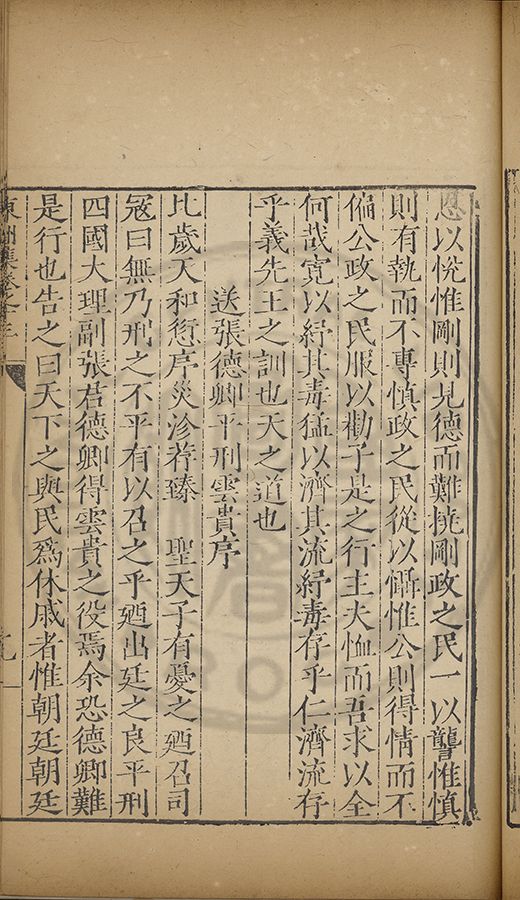 恩以悅惟剛則見德而難撓剛政之民一以讋惟慎
則有執而不專慎政之民從以懾惟公則得情而不
偏公政之民服以勸子是之行主夫恤而吾求以全
何哉寛以紓其毒猛以濟其流紓毒存乎仁濟流存
乎義先王之訓也天之道也
送張德卿平刑雲貴序
比歲天和愆序災沴荐臻 聖天子有憂之廼召司
宼曰無乃刑之不平有以召之乎廼出廷之良平刑
四國大理副張君德卿得雲貴之役焉余恐德卿難
是行也告之曰天下之與民爲休戚者惟朝廷朝廷
集卷之三